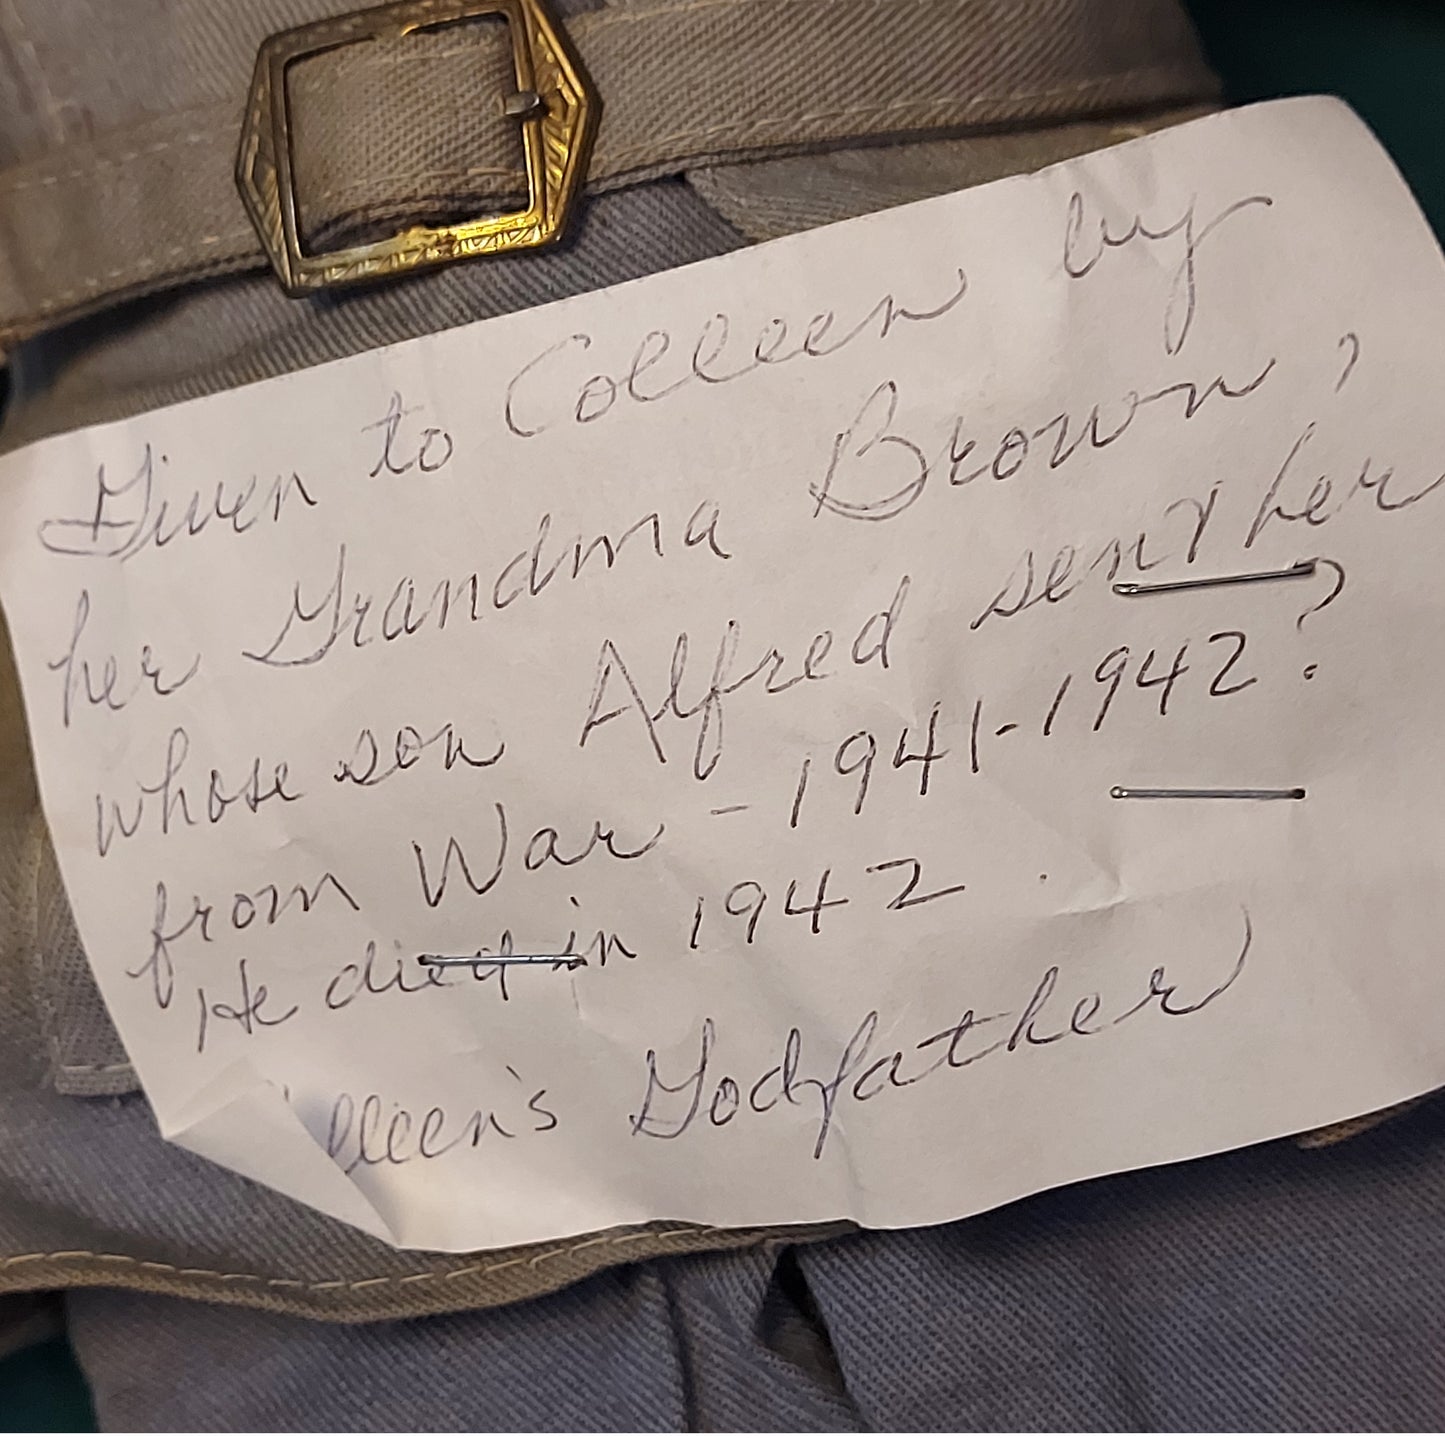 Given to Colleen by
her Grandma Brown,
whose son Alfred sent her
from War - 1941-1942?
He died in 1942.
lleen's Godfather